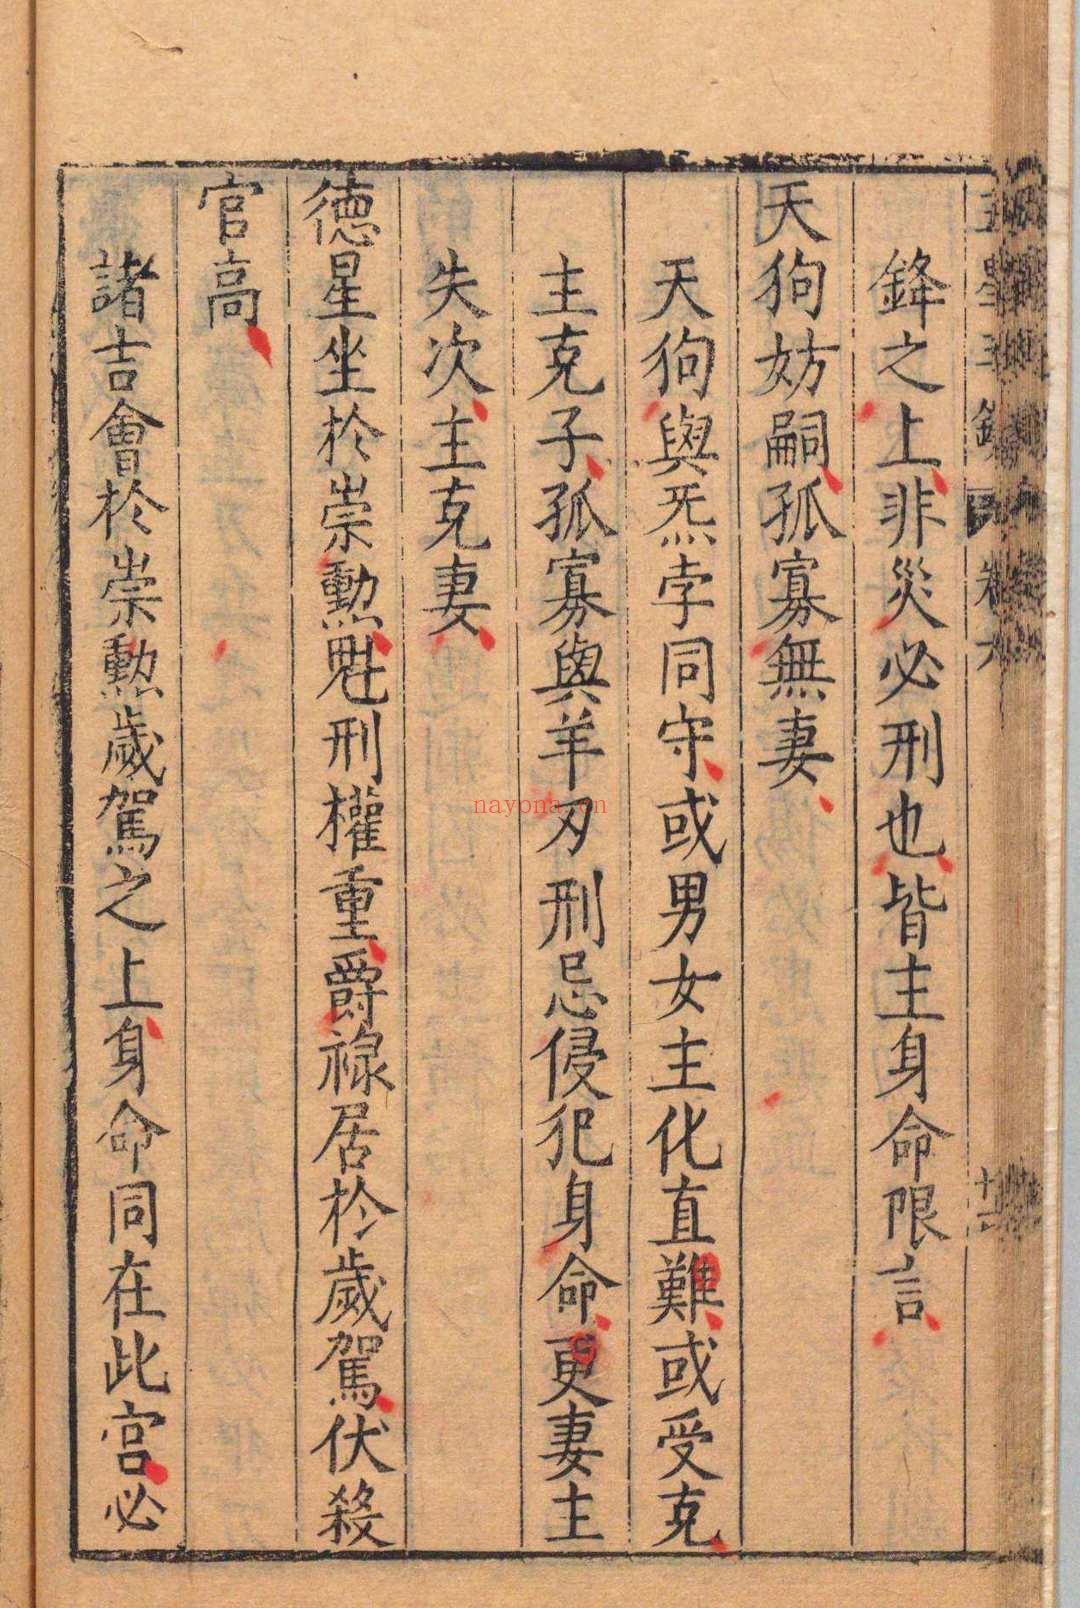 鋒之上非災必刑也皆主身命限言
天狗妨嗣孤寡無妻
天狗與炁孛同守或男女主化直難或受克
主克子孤寡與羊刃刑忌侵犯身命更妻主
失次主克妻
德星坐於崇勲魁刑權重爵祿居於歲駕伏殺
官高
諸吉會於崇勲歲駕之上身命同在此宫必
nayona.cn